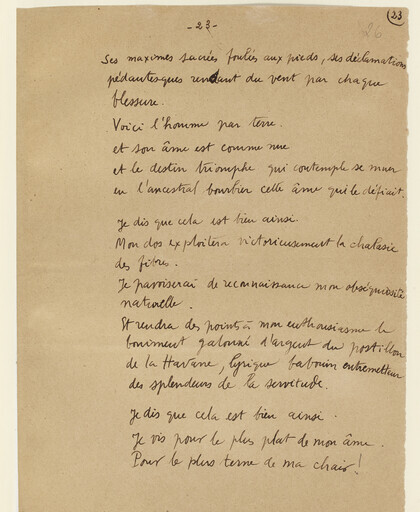 - 23 -
23
26
Ses maximes sacrées foulées aux pieds, ses déclamations
pédantesques rendant du vent par chaque
blessure.
Voici l'homme par terre.
et son âme est comme nue
et le destin triomphe qui contemple se muer
en l'ancestral bourbier cette âme qui le défiait.
Je dis que cela est bien ainsi.
Mon dos exploitera victorieusement la chalasie
des fibres.
Je pavoiserai de reconnaissance mon obséquiosité
naturelle.
Et rendra des points à mon enthousiasme le
boniment galonné d'argent du postillon
de la Havane, lyrique babouin entremetteur
des splendeurs de la servitude.
Je dis que cela est bien ainsi.
Je vis pour le plus plat de mon âme.
Pour le plus terne de ma chair !